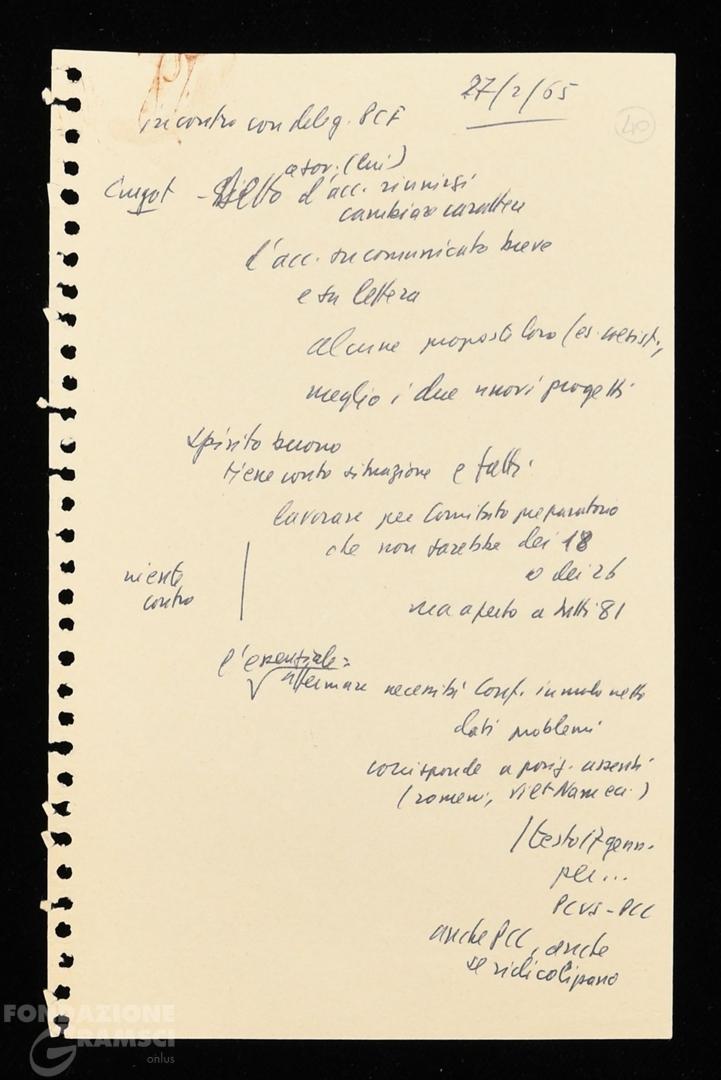 27/2/65
40
incontro con deleg. PCF
a sov. (lui)
Cuyot - detto d'acc. riunirsi
cambiare carattere
d'acc. su comunicato breve
e su lettera
alcune proposte loro (es. coesist.,
meglio i due nuovi progetti
spirito buono
tiene conto situazione e fatti
lavorare per Comitato preparatorio
che non sarebbe dei 18
o dei 26
ma aperto a tutti 81
niente
contro
l'essenziale:
affermare necessità Conf. in modo netto
dati problemi
corrisponde a posiz. assenti
(romeni, vietnameci)
/testo 17 genn.
per...
PCUS-PCC
anche PCC, anche
se ridicolizzano
FONDAZIONE
GRAMSCI
onlus